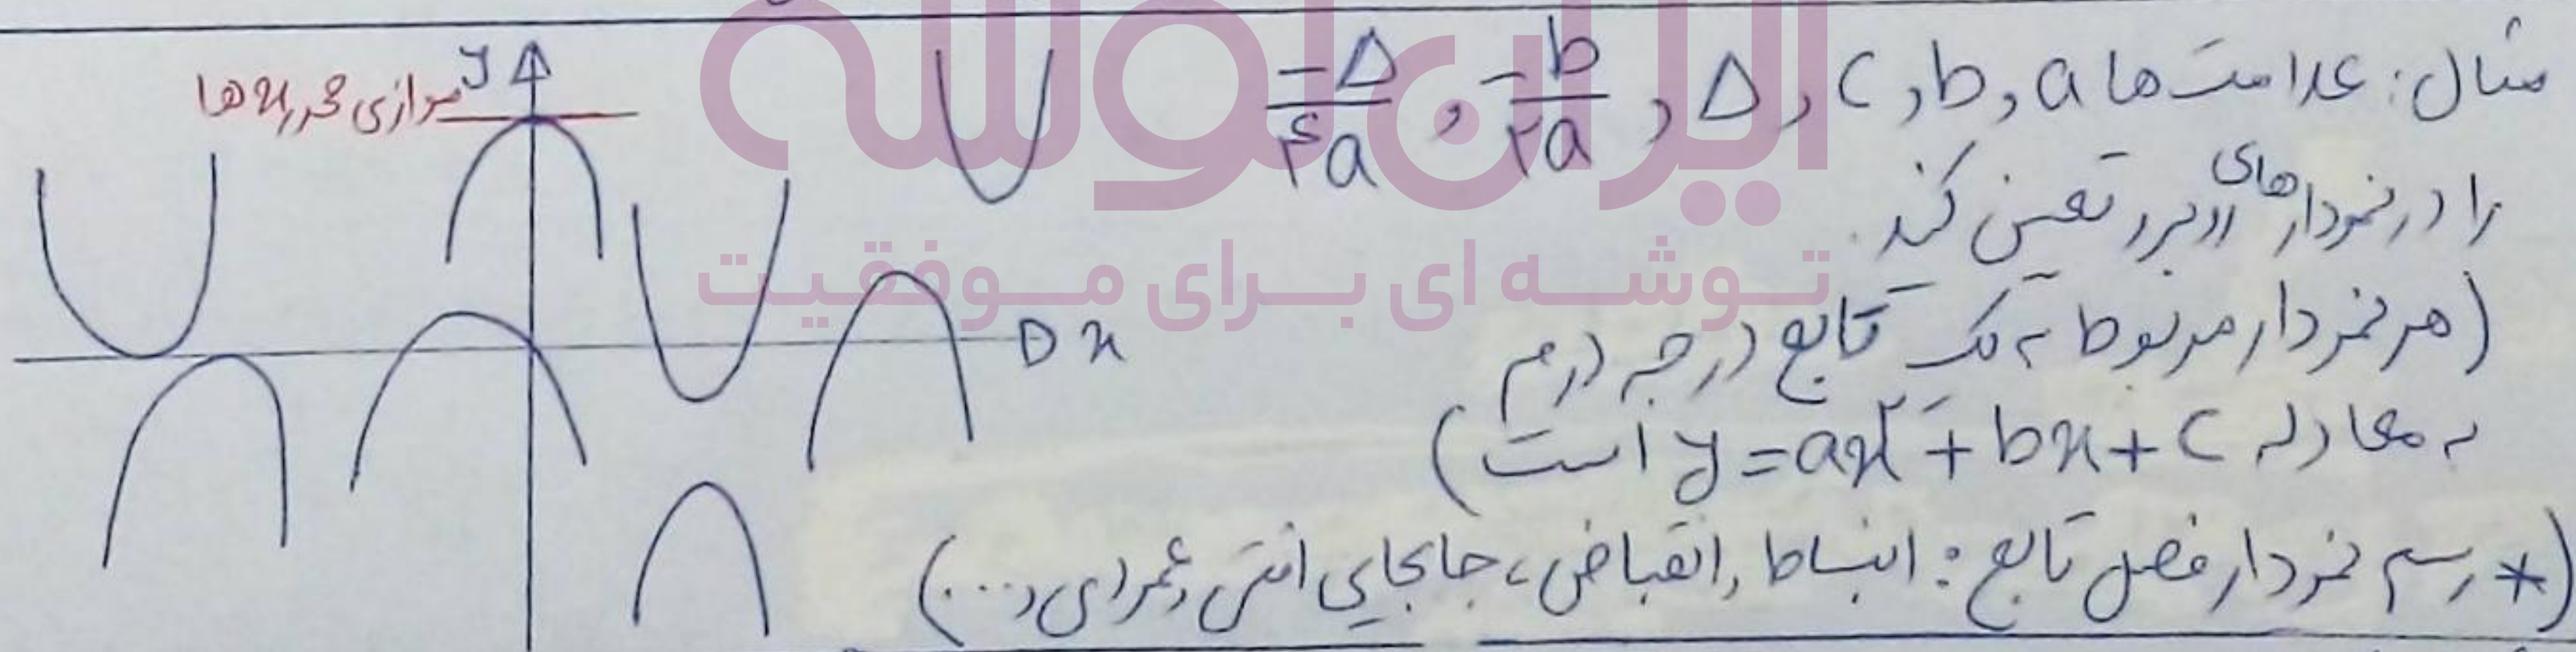 مثال: علامت‌ها a و b و c و Δ و -b/۲a و -Δ/۴a
را در نمودارهای روبرو تعیین کنید.
(هر نمودار مربوط به یک تابع درجه دوم
به معادله y=ax²+bx+c است)
(* رسم نمودار فصل تابع: انبساط و انقباض، جابجایی افقی و عمودی و...)
y
موازی محور xها
x
ایران توشه
توشه ای برای موفقیت